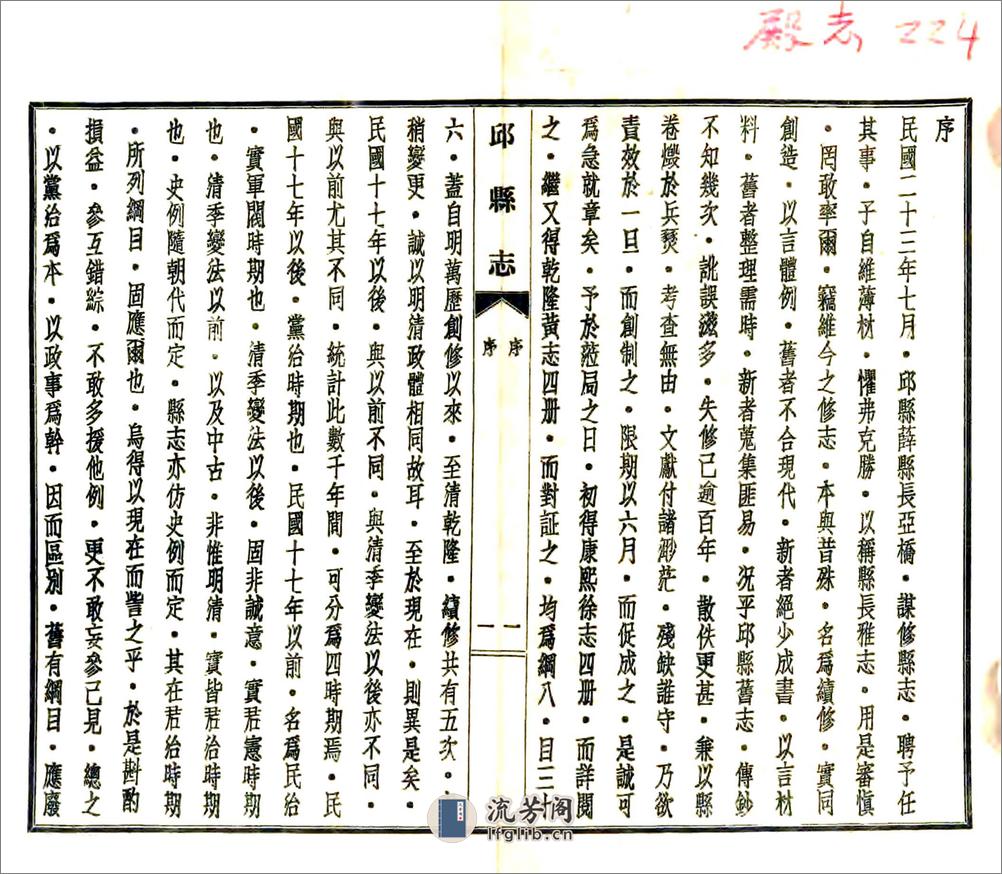 殿志 224
序
民國二十三年七月·邱縣薛縣長亞橋·謀修縣志·聘予任
其事·子自維薄材·懼弗克勝·以稱縣長雅志·用是審慎
·罔敢率爾·竊維今之修志·本與昔殊·名爲續修·實同
創造·以言體例·舊者不合現代·新者絕少成書·以言材
料·舊者整理需時·新者蒐集匪易·況乎邱縣舊志·傳鈔
不知幾次·訛誤滋多·失修已逾百年·散佚更甚·兼以縣
卷燬於兵燹·考查無由·文獻付諸渺茫·殘缺誰守·乃欲
責效於一日·而創制之·限期以六月·而促成之·是誠可
爲急就章矣·予於蒞局之日·初得康熙徐志四册·而詳閱
之·繼又得乾隆黃志四册·而對証之·均爲綱八·目三十
邱縣志
序
序
一
一
六·蓋自明萬歷創修以來·至清乾隆·續修共有五次·少
稍變更·誠以明清政體相同故耳·至於現在·則異是矣·
民國十七年以後·與以前不同·與清季變法以後亦不同·
與以前尤其不同·統計此數千年間·可分爲四時期焉·民
國十七年以後·黨治時期也·民國十七年以前·名爲民治
·實軍閥時期也·清季變法以後·固非誠意·實君憲時期
也·清季變法以前·以及中古·非惟明清·實皆君治時期
也·史例隨朝代而定·縣志亦仿史例而定·其在君治時期
·所列綱目·固應爾也·烏得以現在而訾之乎·於是斟酌
損益·參互錯綜·不敢多援他例·更不敢妄參己見·總之
·以黨治爲本·以政事爲幹·因而區別·舊有綱目·應廢
流芳阁
lfglib.cn